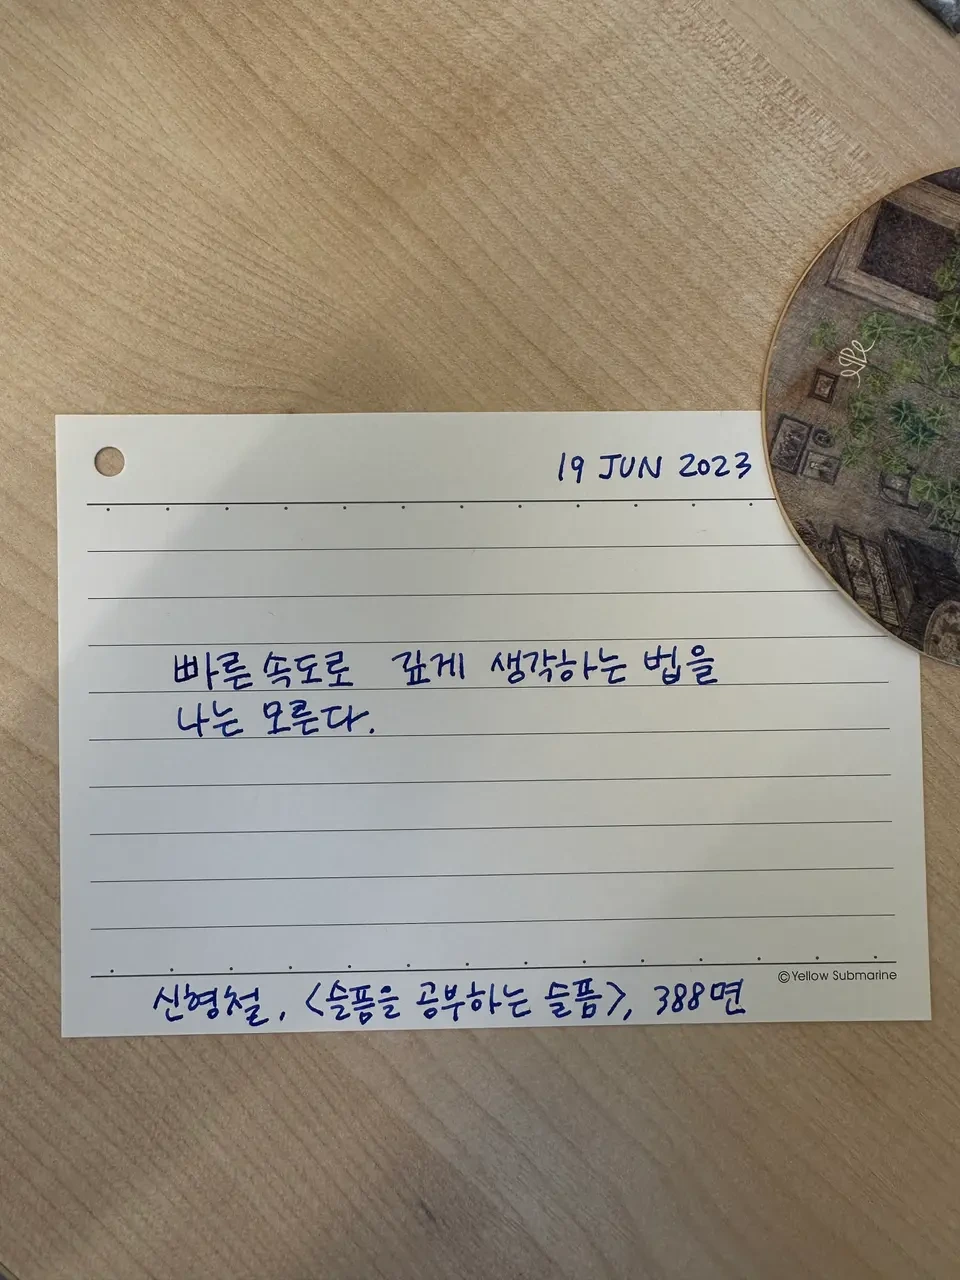 19 JUN 2023
빠른 속도로 깊게 생각하는 법을
나는 모른다.
©Yellow Submarine
신형철, <슬픔을 공부하는 슬픔>, 388면